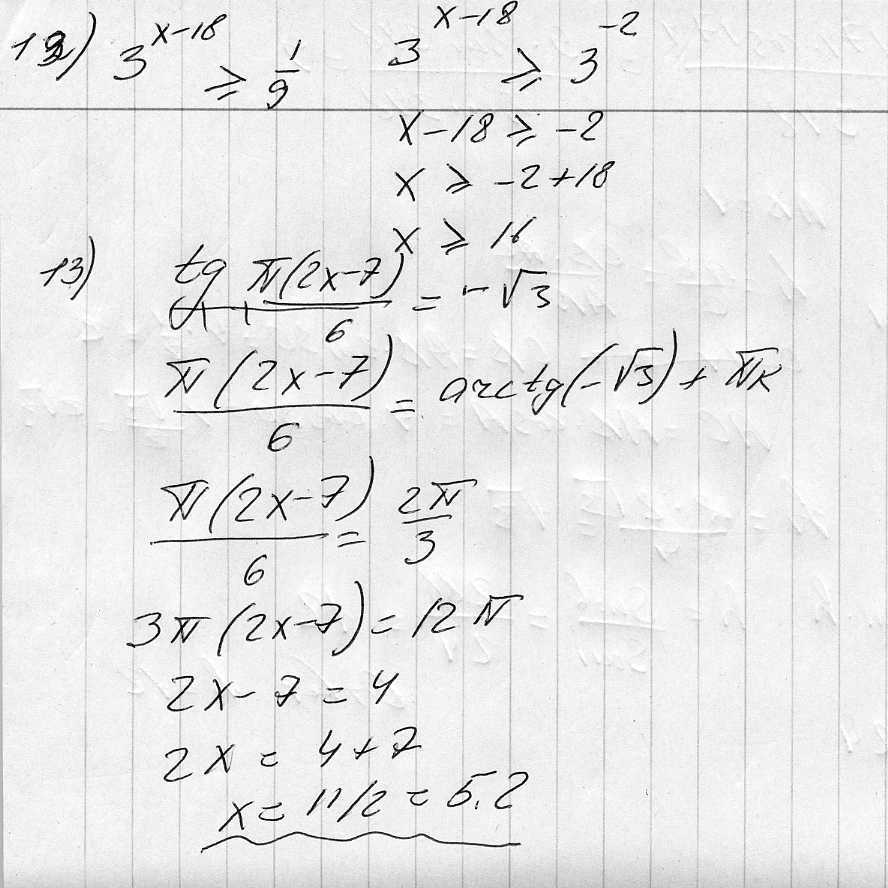 12) 3^(x-18) ≥ 1/9 3^(x-18) ≥ 3^(-2)
x-18 ≥ -2
x ≥ -2+18
x ≥ 16
13) tg π(2x-7)/6 = -√3
π(2x-7)/6 = arctg(-√3) + πk
π(2x-7)/6 = 2π/3
3π(2x-7) = 12π
2x-7 = 4
2x = 4+7
x = 11/2 = 5.2